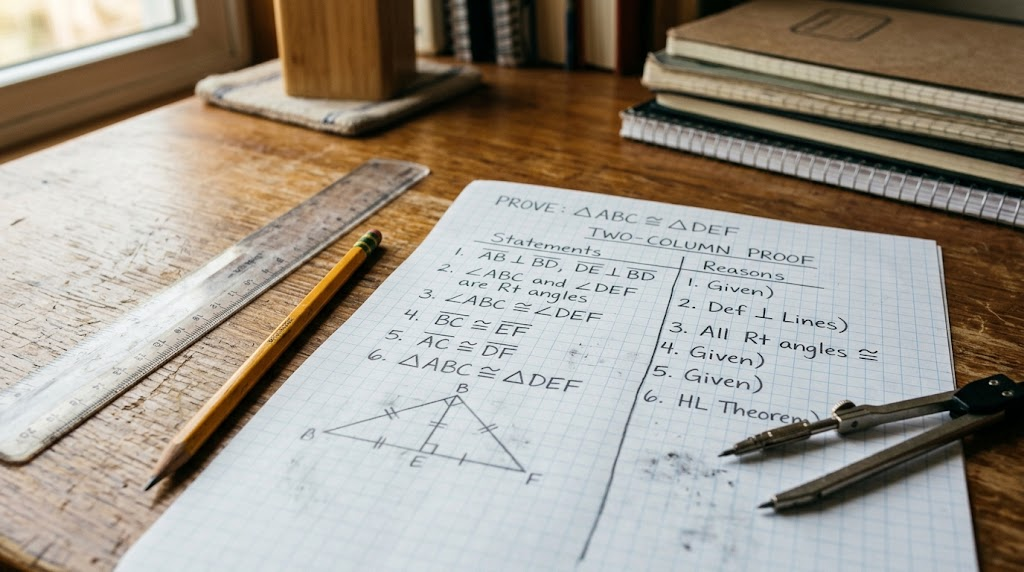 PROVE: △ABC ≅ △DEF
TWO-COLUMN PROOF
Statements
1. AB ⊥ BD, DE ⊥ BD
2. ∠ABC and ∠DEF
are Rt angles
3. ∠ABC ≅ ∠DEF
4. BC ≅ EF
5. AC ≅ DF
6. △ABC ≅ △DEF
Reasons
1. Given)
2. Def ⊥ Lines)
3. All Rt angles ≅
4. Given)
5. Given)
6. HL Theorem)
B
B
E
F